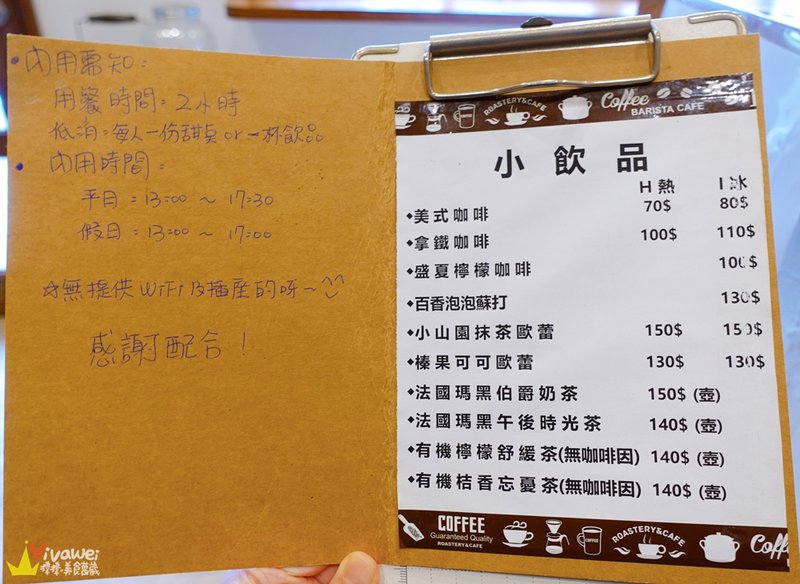 • 內用需知：
用餐時間：2小時
低消：每人一份甜點or一杯飲品
• 內用時間：
平日：13:00 ~ 17:30
假日：13:00 ~ 17:00
☆無提供WiFi及插座的呀~^^
感謝配合！
ROASTERY&CAFE
Coffee
BARISTA CAFE
小飲品
H熱 I冰
◆美式咖啡 70$ 80$
◆拿鐵咖啡 100$ 110$
◆盛夏檸檬咖啡 100$
◆百香泡泡蘇打 130$
◆小山園抹茶歐蕾 150$ 150$
◆榛果可可歐蕾 130$ 130$
◆法國瑪黑伯爵奶茶 150$ (壺)
◆法國瑪黑午後時光茶 140$ (壺)
◆有機檸檬舒緩茶(無咖啡因) 140$ (壺)
◆有機桔香忘憂茶(無咖啡因) 140$ (壺)
COFFEE
Guaranteed Quality
ROASTERY&CAFE
COFFEE
ROASTERY&CAFE
Coff
Vivawei